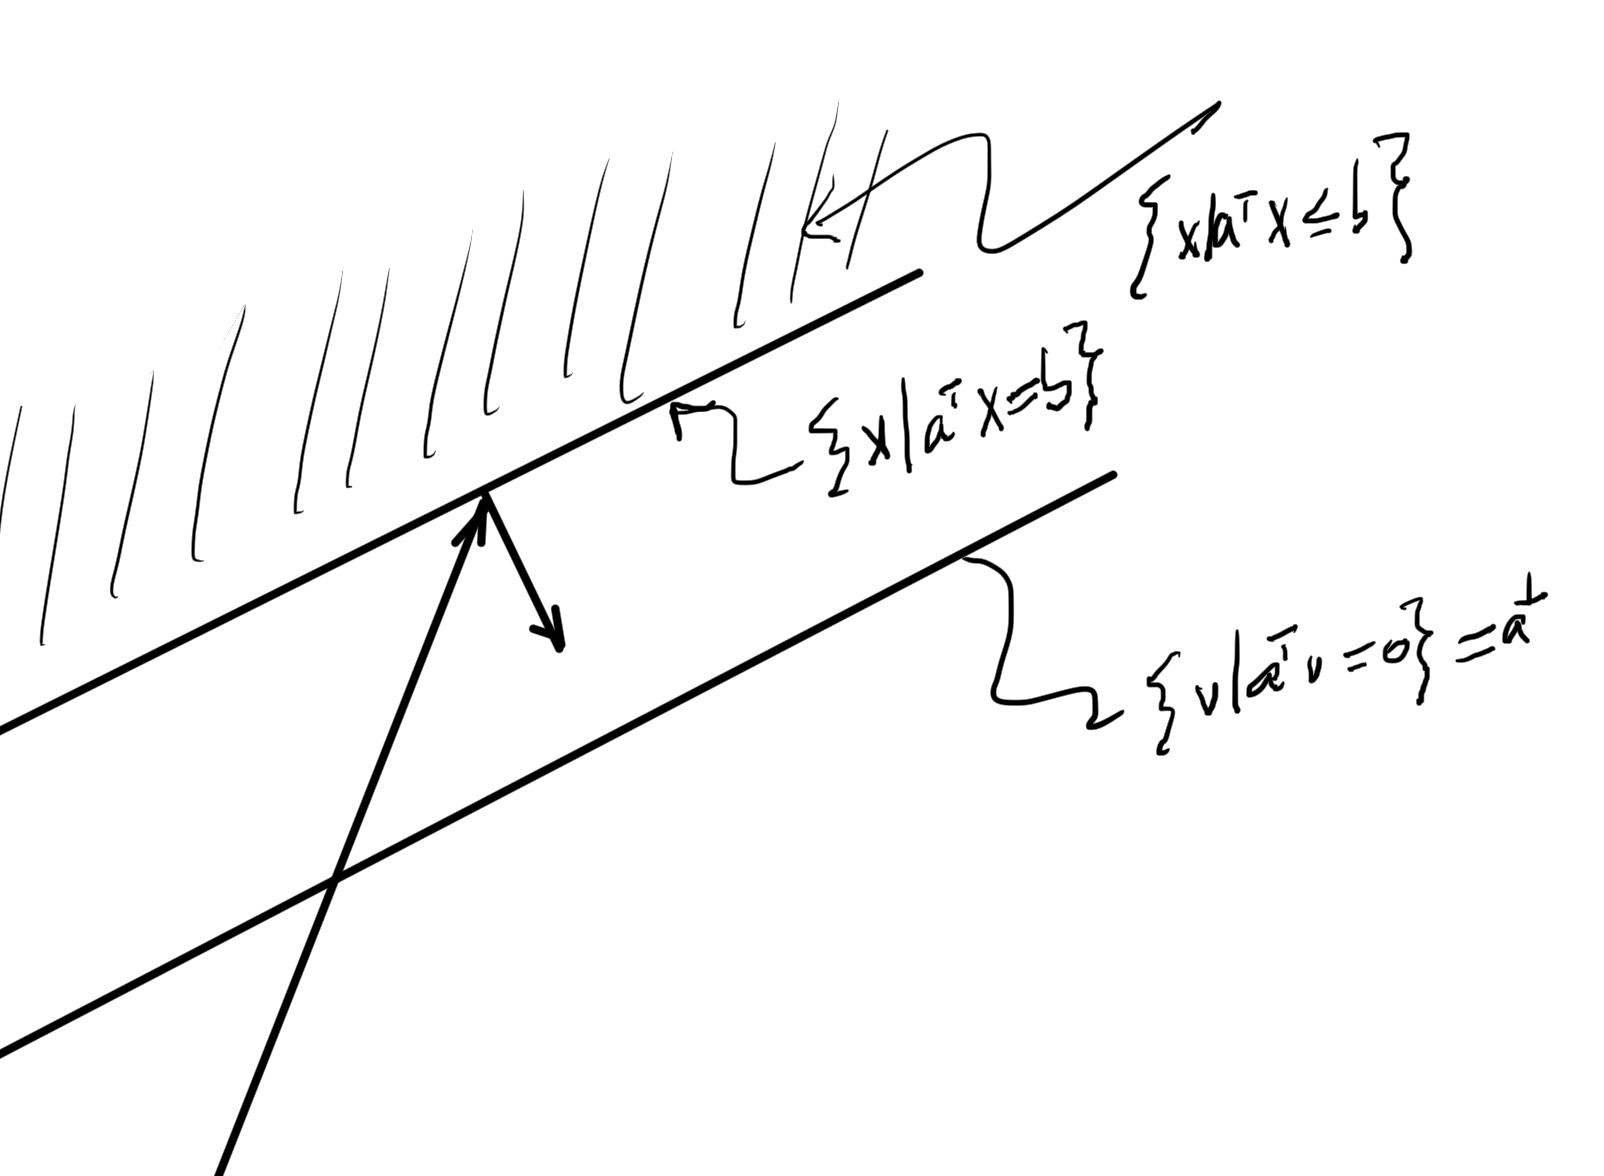 {x|aᵀx≤b}
{x|aᵀx=b}
{v|aᵀv=0}=a⊥